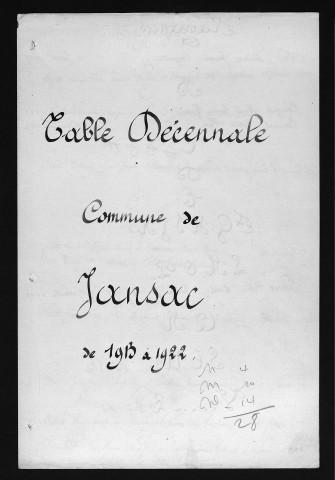 Table Décennale
Commune de
Jansac
de 1913 à 1922.
N 4
M 10
D 14
28